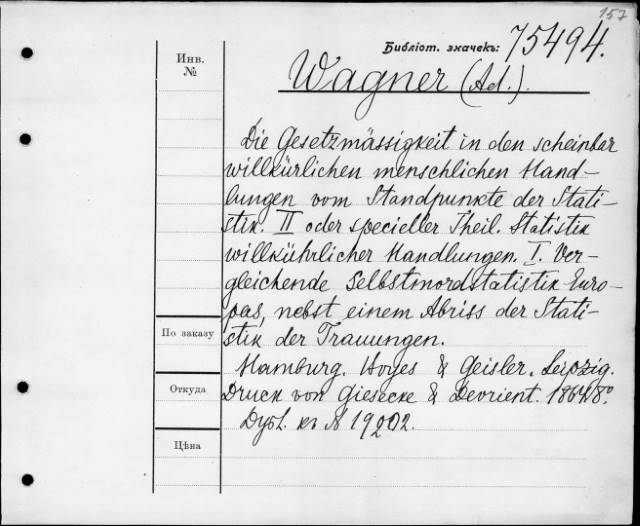 157
Библіот. значекъ: 75494.
Инв.
№
Wagner (Ad.).
Die Gesetzmässigkeit in den scheinbar
willkürlichen menschlichen Hand-
lungen vom Standpunkte der Stati-
stik. II oder specieller Theil. Statistik
willkührlicher Handlungen. I. Ver-
gleichende Selbstmordstatistik Euro-
pas, nebst einem Abriss der Stati-
stik der Trauungen.
По заказу
Hamburg. Boyes & Geisler. Leipzig.
Откуда
Druck von Giesecke & Devrient. 1864. 8º.
Дубл. къ № 19202.
Цѣна